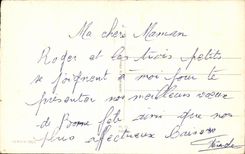 Ma chère Maman
Roger et les trois petits
se joignent à moi pour te
présenter nos meilleurs vœux
de Bonne fête ainsi que nos
plus affectueux baisers